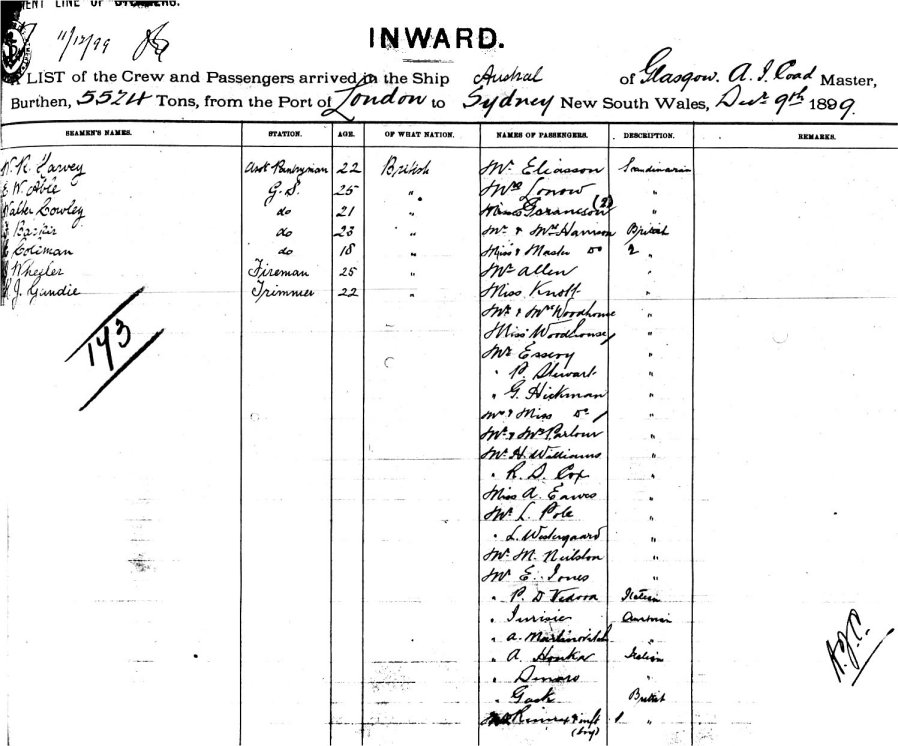 MENT LINE OF STEAMERS.
11/12/99
INWARD.
A LIST of the Crew and Passengers arrived in the Ship Austral of Glasgow. A. J. Coad Master,
Burthen, 5524 Tons, from the Port of London to Sydney New South Wales, Decr 9th 1899.
SEAMEN'S NAMES. STATION. AGE. OF WHAT NATION. NAMES OF PASSENGERS. DESCRIPTION. REMARKS.
W. R. Harvey Asst Pantryman 22 British Mr Eliasson Scandinavian
E W Able G. S. 25 " Mrs Lonow "
Walter Cowley do 21 " Miss Goranson (2) "
Baskir do 23 " Mr & Mrs Harrison British
Coleman do 18 " Miss & Master Do 2 "
Wheeler Fireman 25 " Mr Allen "
J. Gandie Trimmer 22 " Miss Knott "
Mr & Mrs Woodhouse "
Miss Woodhouse "
Mr Essery "
" P. Stewart "
" G. Hickman "
Mrs & Miss Do / "
Mr & Mrs Parlour "
Mr H. Williams "
" R. D. Cox "
Miss A. Eaves "
Mr L. Pole "
" L. Westergaard "
Mr M. Neilston "
Mr E. Jones "
" P. D Vedova Italian
" Austrian
" A. Martinovitch "
" A. Italian
" "
" Gask British
& inft 1 "
(boy)
143
A.J.C.